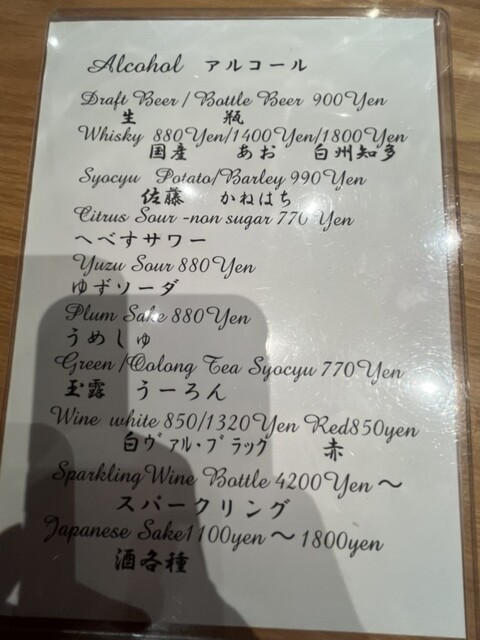 Alcohol アルコール
Draft Beer / Bottle Beer 900Yen
生 瓶
Whisky 880Yen/1400Yen/1800Yen
国産 あお 白州知多
Syocyu Potato/Barley 990Yen
佐藤 かねはち
Citrus Sour -non sugar 770 Yen
へべすサワー
Yuzu Sour 880Yen
ゆずソーダ
Plum Sake 880Yen
うめしゅ
Green /Oolong Tea Syocyu 770Yen
玉露 うーろん
Wine white 850/1320Yen Red850yen
白ヴァル・ブラッグ 赤
Sparkling Wine Bottle 4200Yen～
スパークリング
Japanese Sake1100yen～1800yen
酒各種